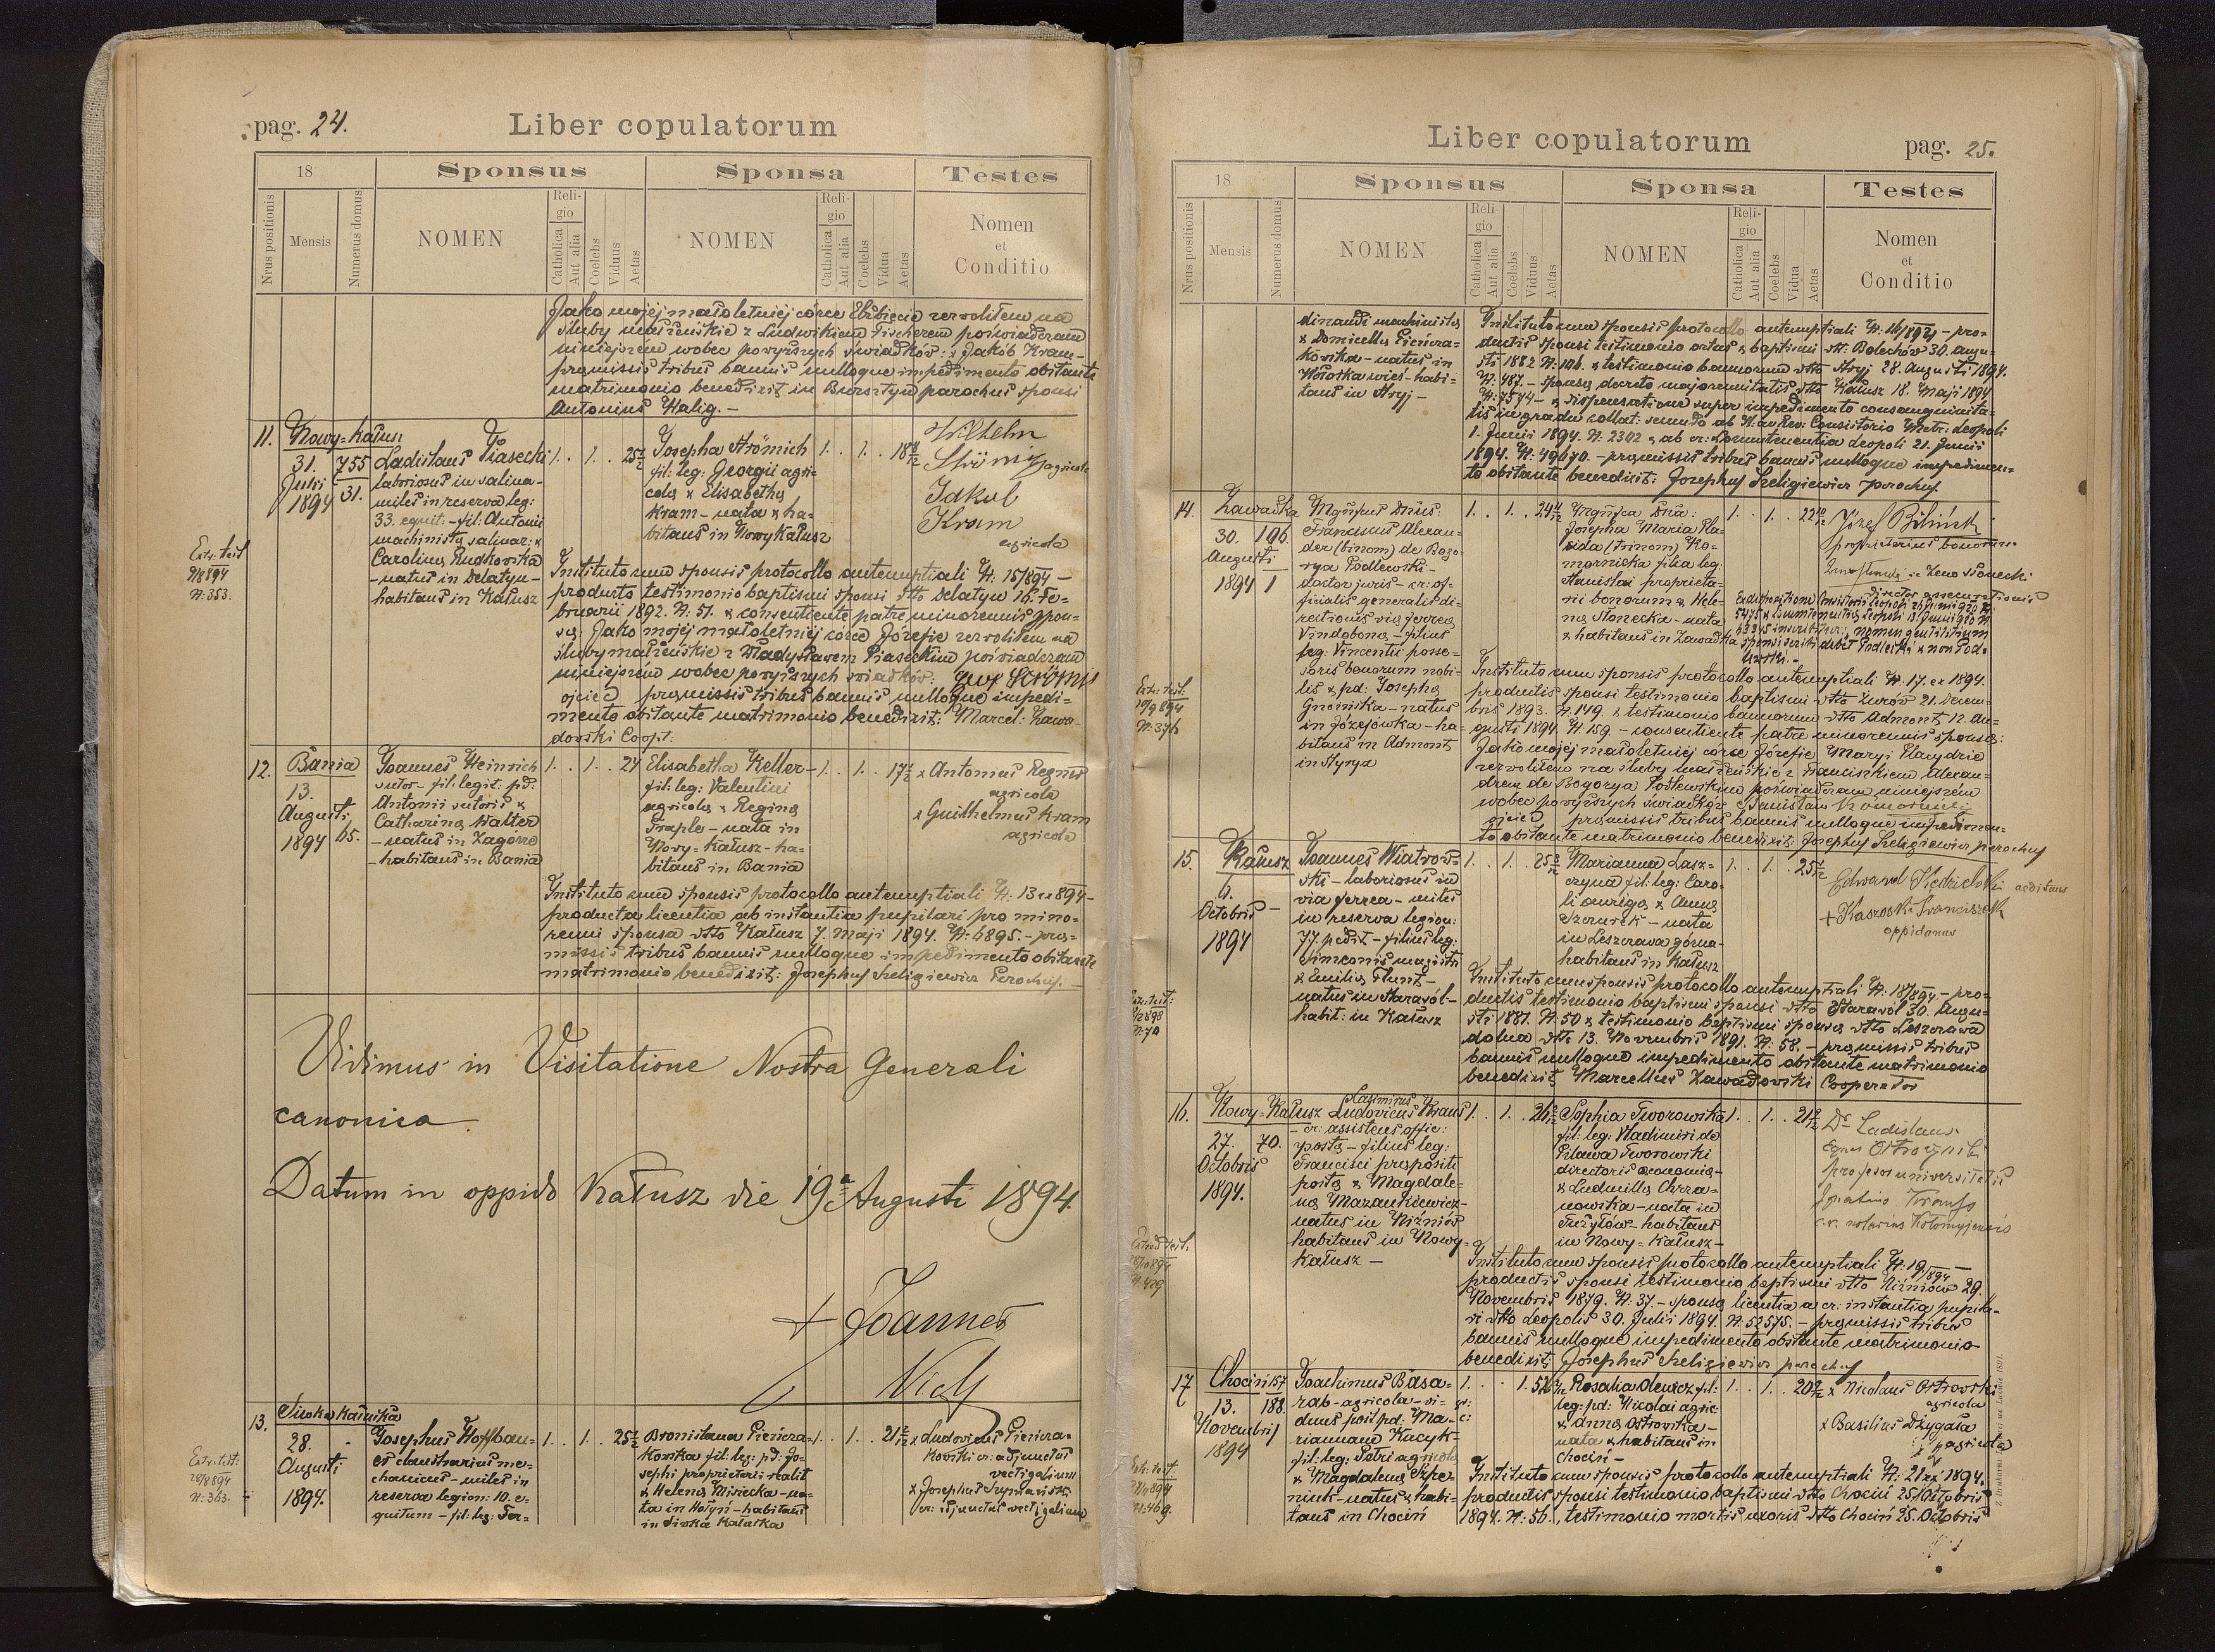 pag. 24.
Liber copulatorum
18
Sponsus
Sponsa
Testes
Nrus positionis
Mensis
Numerus domus
NOMEN
Religio
Catholica
Aut alia
Coelebs
Viduus
Aetas
NOMEN
Religio
Catholica
Aut alia
Coelebs
Vidua
Aetas
Nomen
et
Conditio
Jako mojej małoletniej córce Elżbiecie zezwoliłem na
śluby małżeńskie z Ludwikiem Fischerem poświadczam
niniejszem wobec powyższych świadków: Jakób Kram-
præmissis tribus bannis nulloque impedimento obstante
matrimonio benedixit in Bursztyn parochus sponsi
Antonius Walig. -
11. Nowy-Kałusz
31.
Julii
1894
755
31.
Ladislaus Piasecki
laboriosus in salina-
miles in reserva leg:
33. equit. - fil: Antonii
machinistæ salinar: &
Carolinæ Rudkowska
- natus in Delatyn -
habitans in Kałusz
1. . 1. . 25
Josepha Strömich
fil: leg: Georgii agri-
colæ & Elisabethæ
Kram - nata & ha-
bitans in Nowy Kałusz
1. . 1. . 18
Wilhelm
agricola
Jakub
Kram
agricola
Extr: test
N: 353.
Instituto cum sponsis protocollo antenuptiali N. 15/894 -
producto testimonio baptismi sponsi dto Delatyn 16. Fe-
bruarii 1892. N. 51. & consentiente patre minorennis spon-
sæ: Jako mojej małoletniej córce Józefie zezwoliłem na
śluby małżeńskie z Władysławem Piaseckim poświadczam
niniejszem wobec powyższych świadków:
ojciec præmissis tribus bannis nulloque impedi-
mento obstante matrimonio benedixit: Marcel: Zawa-
dowski Coopt.
12. Bania
13.
Augusti
1894
65.
Joannes Heinrich
sutor - fil: legit: pd:
Antonii sutoris &
Catharinæ Walter
- natus in Zagórze
- habitans in Bania
1. . 1. . 24
Elisabetha Keller -
fil: leg: Valentini
agricolæ & Reginæ
Traple - nata in
Nowy-Kałusz - ha-
bitans in Bania
1. . 1. . 17
x Antonius Regner
agricola
x Guilhelmus Kram
agricola
Instituto cum sponsis protocollo antenuptiali N. 13 ex 894 -
producta licentia ab instantia pupilari pro mino-
renni sponsa dto Kałusz 7. Maji 1894. N: 6895. - præ-
missis tribus bannis nulloque impedimento obstante
matrimonio benedixit: Josephus Szeligiewicz Parochus.
Vidimus in Visitatione Nostra Generali
canonica.
Datum in oppido Kałusz die 19a Augusti 1894.
+ Joannes
13. Siwka Kałuska
28.
Augusti
1894.
Josephus Hoffbau-
er claustrarius me-
chanicus - miles in
reserva legion: 10. e-
quitum - fil: leg: Fer-
1. . 1. . 25
Bronislava Pieniczą-
kowska fil: leg: pd: Jo-
sephi proprietarii realit
& Helenæ Misiecka - na-
ta in Hoszni - habitans
in Siwka Kałuska
1. . 1. . 21
x Ludovicus Pieniczą-
kowski cr: adjunctus
vectigalium
x Josephus
cr: adjunctus vectigalium
Extr: test:
28/8 894
N: 363.
Liber copulatorum
pag. 25.
18
Sponsus
Sponsa
Testes
Nrus positionis
Mensis
Numerus domus
NOMEN
Religio
Catholica
Aut alia
Coelebs
Viduus
Aetas
NOMEN
Religio
Catholica
Aut alia
Coelebs
Vidua
Aetas
Nomen
et
Conditio
dinandi machinistæ
& Domicellæ Pieniczą-
kowska - natus in
Wołoska wieś - habi-
tans in Stryj -
Instituto cum sponsis protocollo antenuptiali N: 16/894 - pro-
ductis sponsi testimonio ortus & baptismi dto: Bolechów 30. Augu-
sti 1882 N. 106. & testimonio bannorum dto Stryj 28. Augusti 1894.
N: 487. - sponsæ decreto majorennitatis dto Kałusz 18. Maji 1894
N: 7574 - & dispensatione super impedimento consanguinita-
tis in gradu collat: secundo ab Consistorio Metr: Leopoli
1. Junii 1894. N. 2302 & ab cr: Locumtenentia Leopoli 21. Junii
1894. N: 49670. - præmissis tribus bannis nulloque impedimen-
to obstante benedixit: Josephus Szeligiewicz parochus.
14. Zawadka
30. 106.
Augusti
1894
Mgnificus Dnus:
Franciscus Alexan-
der (binom) de Bogo-
rya Podlewski -
doctor juris - cr: of-
ficialis generalis di-
rectionis viæ ferreæ
Vindobonæ - filius
leg: Vincentii posse-
soris bonorum nobi-
lis & pd: Josephæ
Gnoinska - natus
in Józefówka - ha-
bitans in Admont
in Styrya
1. . 1. . 24
Mgnifica Dna:
Josepha Maria Pla-
cida (trinom) Ko-
mornicka filia leg:
Stanislai proprieta-
rii bonorum & Hele-
næ Słonecka - nata
& habitans in Zawadka
1. . 1. . 22
Józef Biliński
proprietarius bonorum
Zeno Słonecki
director assecurationis
Extr: test.
10/9 894
N: 376
Instituto cum sponsis protocollo antenuptiali N. 17. ex 1894.
productis sponsi testimonio baptismi dto Żurów 21. Decem-
bris 1893. N. 149. & testimonio bannorum dto Admont 12. Au-
gusti 1894. N. 159. - consentiente patre minorennis sponsæ:
Jako mojej małoletniej córce Józefie Maryi Placydzie
zezwoliłem na śluby małżeńskie z Franciszkiem Alexan-
drem de Bogorya Podlewskim poświadczam niniejszém
wobec powyższych świadków Stanisław Komornicki
ojciec præmissis tribus bannis nulloque impedimen-
to obstante matrimonio benedixit Josephus Szeligiewicz parochus
15. Kałusz
6.
Octobris
1894
Joannes Wiatrow-
ski - laboriosus in
via ferrea - miles
in reserva legion:
77. pedit - filius leg:
Simeonis magistri
& Emiliæ Flunt -
natus in Starasól -
habit: in Kałusz
1. . 1. . 25
Marianna Lasz-
czyna fil: leg: Caro-
li aurigæ & Annæ
Szewczek - nata
in Leszczawa górna -
habitans in Kałusz
1. . 1. . 25
Edward Kędzielski aedituus
+ Kaszowski Franciszek
oppidanus
N: 70
Instituto cum sponsis protocollo antenuptiali N. 18/894 - pro-
ductis testimonio baptismi sponsi dto Starasól 30. Augu-
sti 1881. N: 50 & testimonio baptismi sponsæ dto Leszczawa
dolna dto 13. Novembris 1891. N: 58. - præmissis tribus
bannis nulloque impedimento obstante matrimonio
benedixit Marcellus Zawadowski Cooperator
16. Nowy-Kałusz
27. 70.
Octobris
1894.
Casimirus
Ludovicus Kraus
- cr: assistens offic:
postæ - filius leg:
Francisci præpositi
postæ & Magdale-
næ Mazankiewicz -
natus in Niżniów
habitans in Nowy-
Kałusz -
1. . 1. . 26
Sophia Tworowska
fil: leg: Vladimiri de
Pilawa Tworowski
directoris œconomiæ -
& Ludmillæ Chrza-
nowska - nata in
Trzyłów - habitans
in Nowy-Kałusz -
1. . 1. . 21
Dr. Ladislaus
Eques Ostrożyński
professor universitatis
Ignatius Kraus
c. r. notarius Kołomyjensis
Instituto cum sponsis protocollo antenuptiali N. 19/894 -
productis sponsi testimonio baptismi dto Niżniów 29.
Novembris 1879. N: 37. - sponsæ licentia a cr: instantia pupila-
ri dto Leopolis 30. Julii 1894. N. 52575. - præmissis tribus
bannis nulloque impedimento obstante matrimonio
benedixit: Josephus Szeligiewicz parochus
17 Chocin 157
13. 188.
Novembris
1894
Joachimus Basa-
rab - agricola - vi-
duus post pd: Ma-
riannam Kucyk -
fil: leg: Petri agricolæ
& Magdalenæ Szpe-
niuk - natus & habi-
tans in Chocin
1. . . 1. 52
Rosalia Olewicz fil:
leg: pd: Nicolai agric:
& Annæ Ostrowska -
nata & habitans in
Chocin -
1. . 1. . 20
x Nicolaus Ostrowski
agricola
x Basilius Dzygasa
agricola
Instituto cum sponsis protocollo antenuptiali N: 21 ex 1894.
productis sponsi testimonio baptismi dto Chocin 25 Octobris
1894. N: 56., testimonio mortis uxoris dto Chocin 25. Octobris